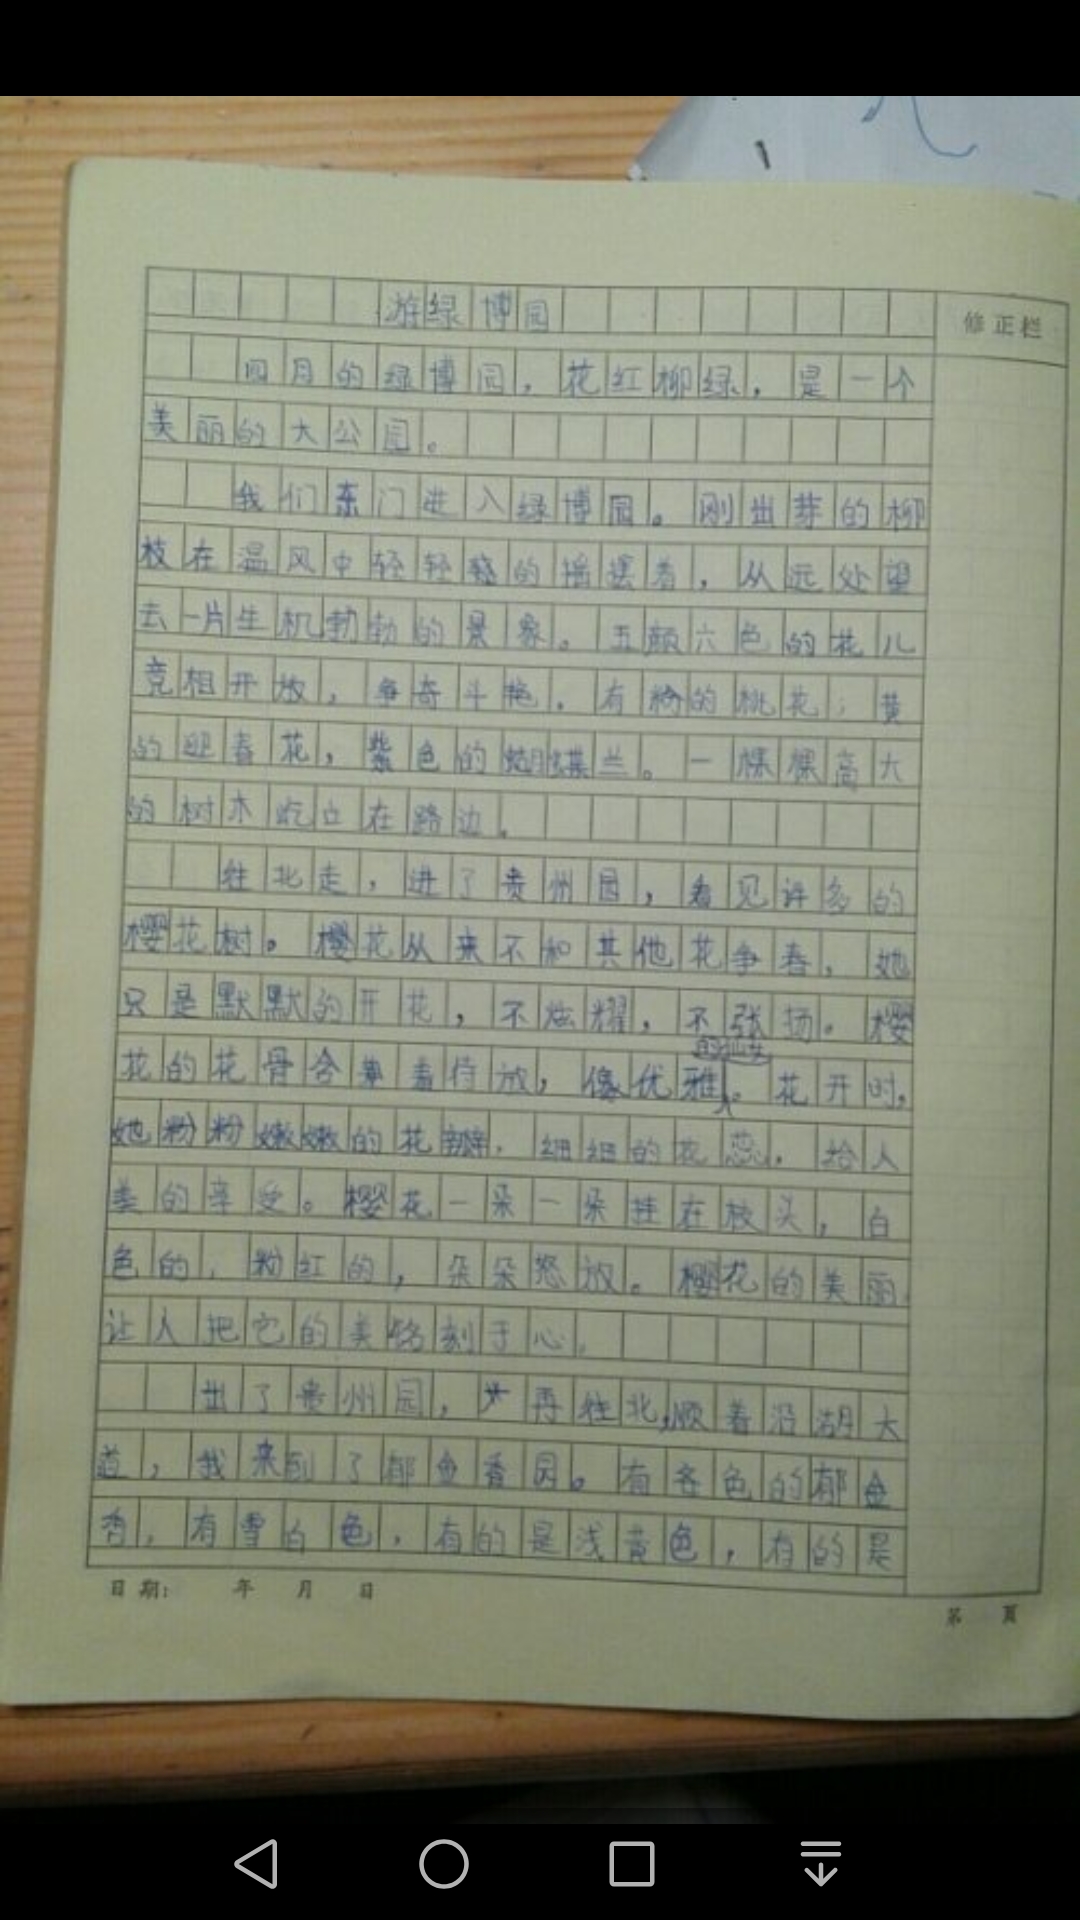 游绿博园
修正栏
四月的绿博园，花红柳绿，是一个
美丽的大公园。
我们东门进入绿博园。刚出芽的柳
枝在温风中轻轻的摇摆着，从远处望
去一片生机勃勃的景象。五颜六色的花儿
竞相开放，争奇斗艳。有粉的桃花；黄
的迎春花，紫色的蝴蝶兰。一棵棵高大
的树木屹立在路边。
往北走，进了贵州园，看见许多的
樱花树。樱花从来不和其他花争春，她
只是默默的开花，不炫耀，不张扬。樱
花的花骨含苞待放，像优雅的仙女。花开时，
她粉粉嫩嫩的花瓣，细细的花蕊，给人
美的享受。樱花一朵一朵挂在枝头，白
色的，粉红的，朵朵怒放。樱花的美丽
让人把它的美铭刻于心。
出了贵州园，再往北，顺着沿湖大
道，我来到了郁金香园。有各色的郁金
香，有雪白色，有的是浅黄色，有的是
日期： 年 月 日
第 页